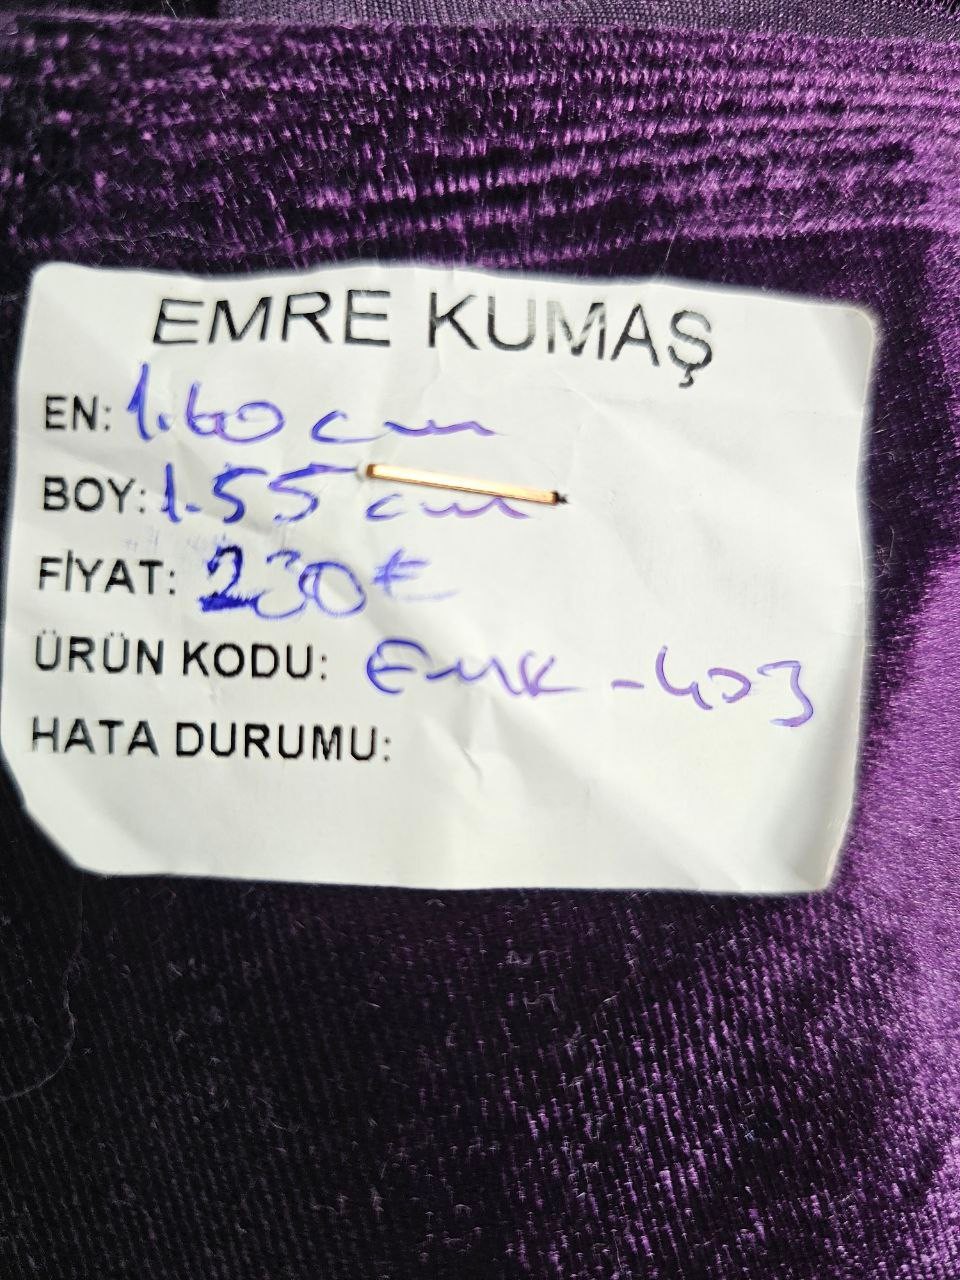 EMRE KUMAŞ
EN: 1.60 cm
BOY: 1.55 cm
FİYAT: 230₺
ÜRÜN KODU: EMK-403
HATA DURUMU: